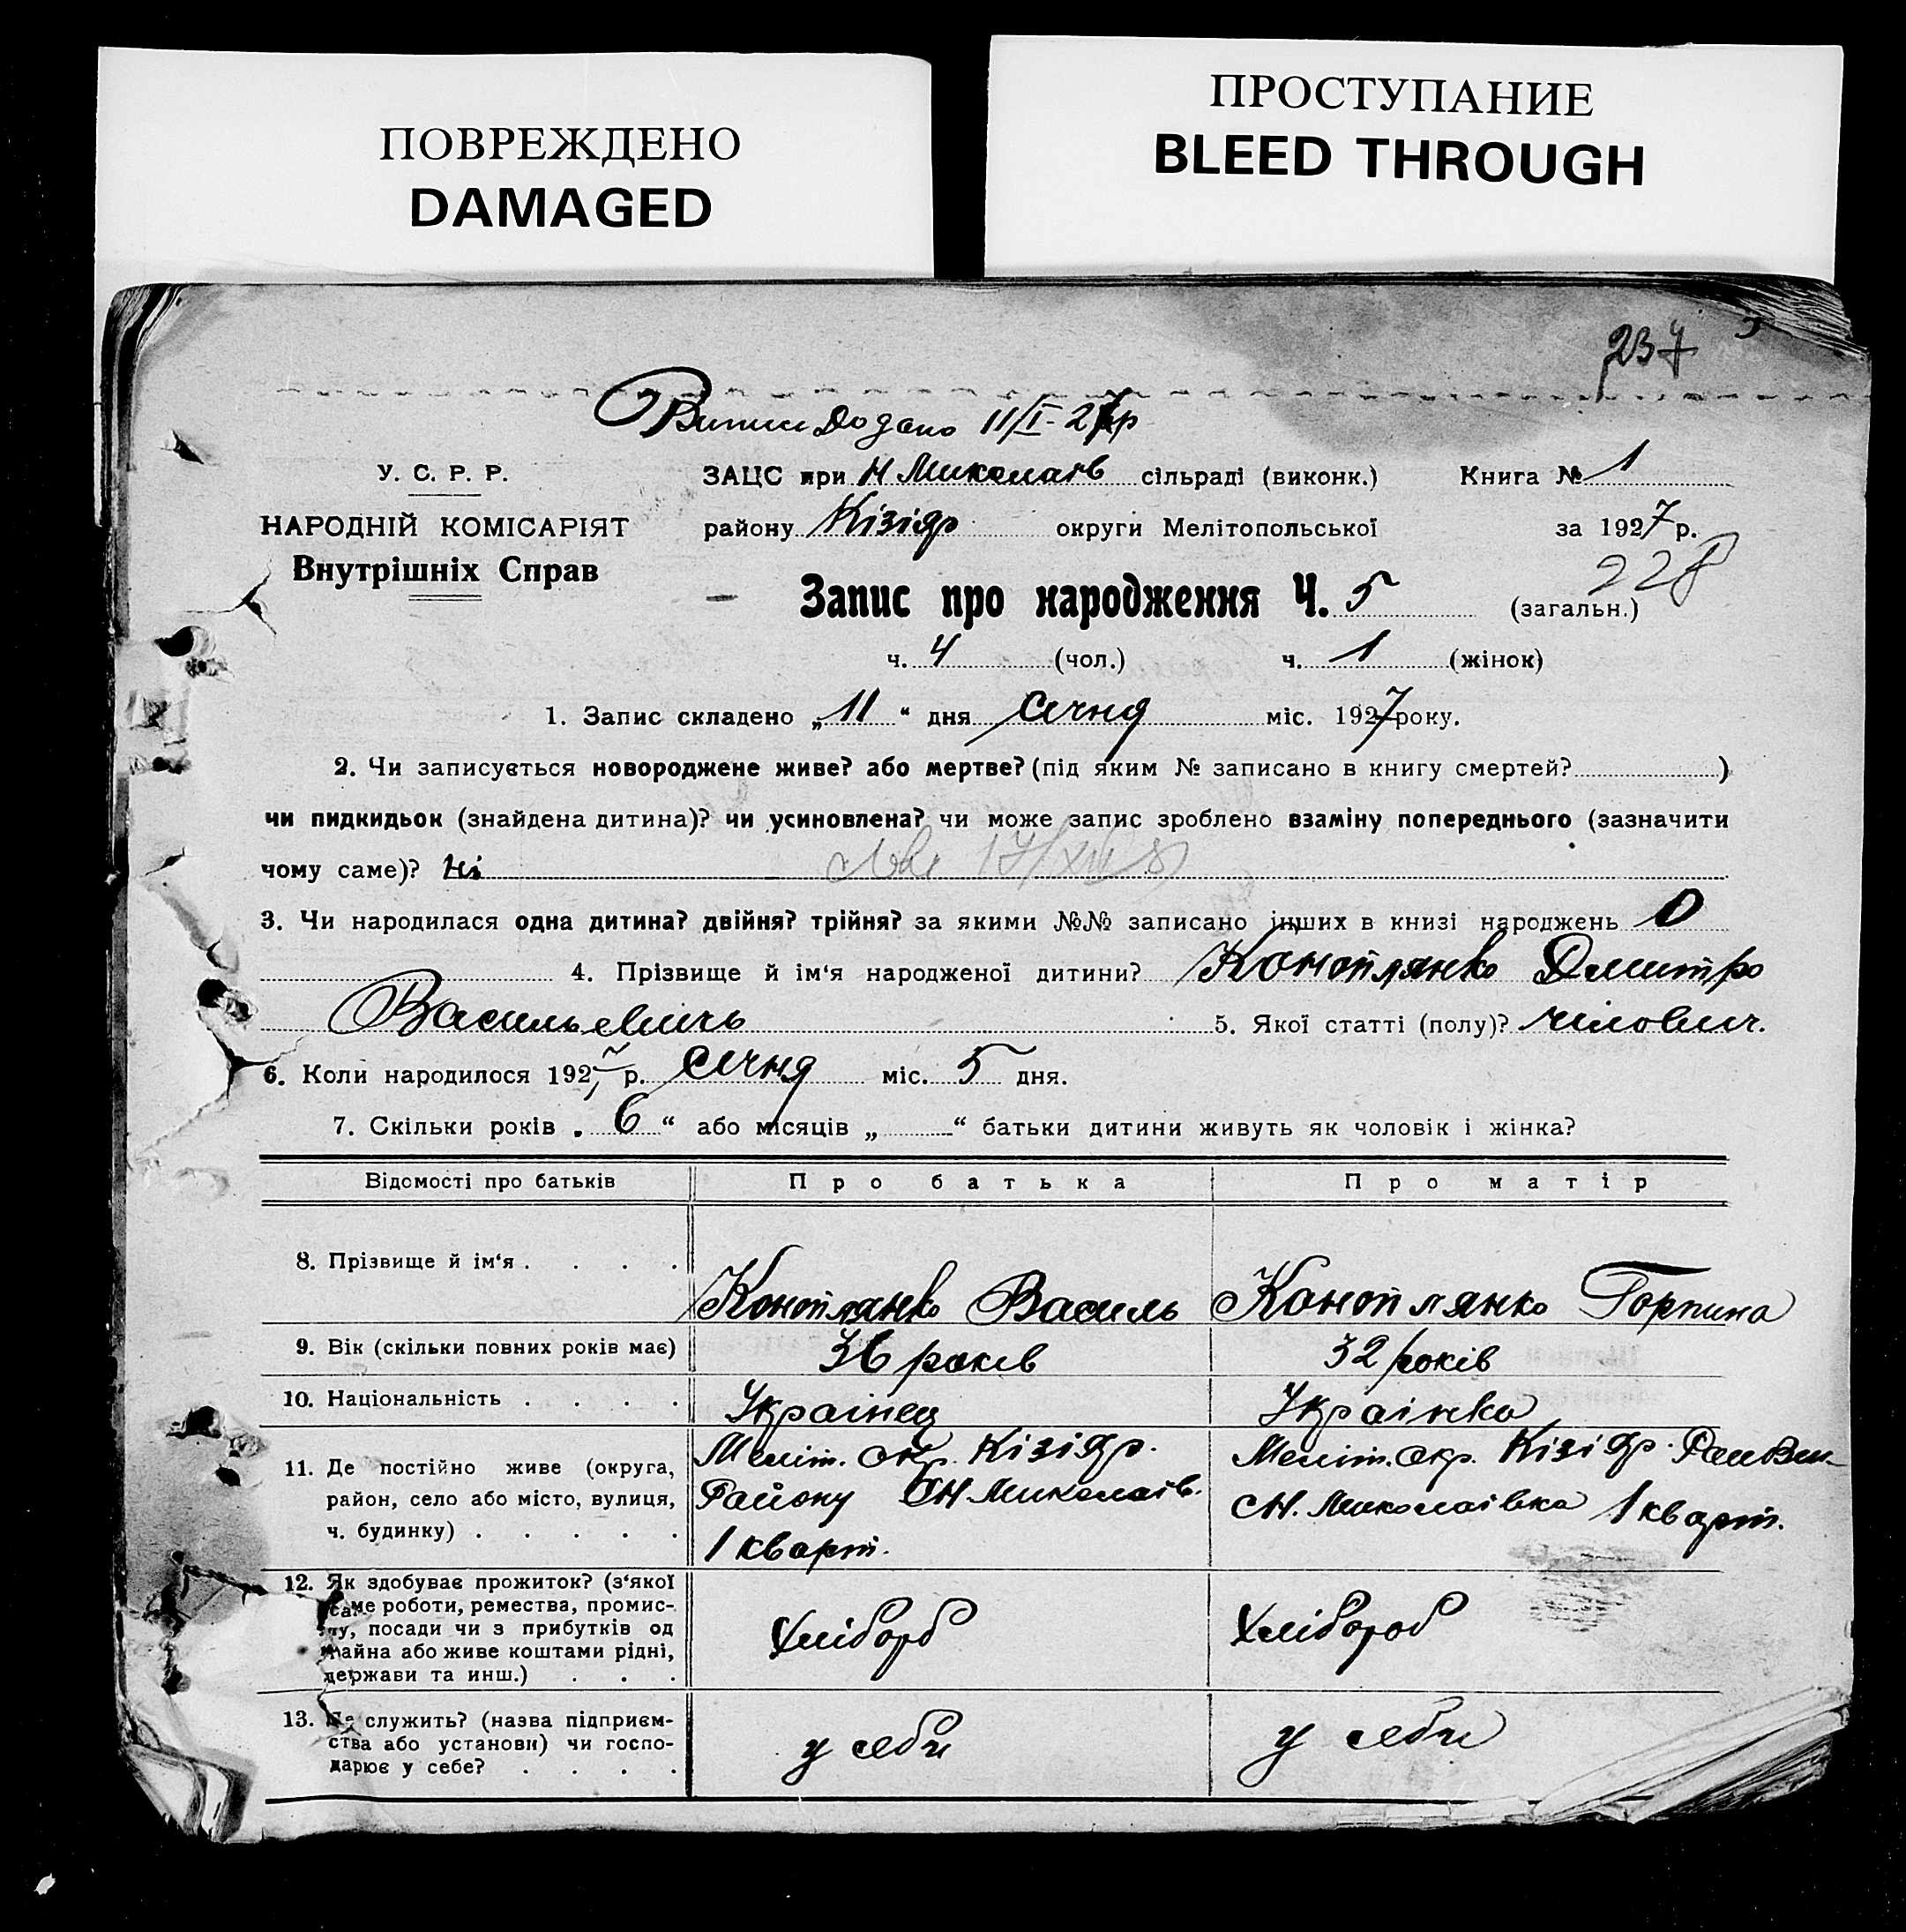 ПОВРЕЖДЕНО
DAMAGED
ПРОСТУПАНИЕ
BLEED THROUGH
237
Виписи Додано 11/I-27р
У. С. Р. Р.
НАРОДНІЙ КОМІСАРІЯТ
Внутрішніх Справ
ЗАЦС при Н Миколаїв сільраді (виконк.) Книга № 1
району Кізіяр округи Мелітопольської за 1927 р.
228
Запис про народження Ч. 5 (загальн.)
ч. 4 (чол.) ч. 1 (жінок)
1. Запис складено „11“ дня Січня міс. 1927 року.
2. Чи записується новороджене живе? або мертве? (під яким № записано в книгу смертей? )
чи пидкидьок (знайдена дитина)? чи усиновлена? чи може запис зроблено взаміну попереднього (зазначити
чому саме)? Ні
3. Чи народилася одна дитина? двійня? трійня? за якими №№ записано інших в книзі народжень 0
4. Прізвище й ім‘я народженої дитини? Коноплянко Дмитро
Васильевичь 5. Якої статті (полу)? чілович.
6. Коли народилося 1927 р. Січня міс. 5 дня.
7. Скільки років „6“ або місяців „ “ батьки дитини живуть як чоловік і жінка?
Відомості про батьків Про батька Про матір
8. Прізвище й ім‘я . . . . Коноплянко Василь Коноплянко Горпина
9. Вік (скільки повних років має) 36 років 32 років
10. Національність . . . . Українец Українка
11. Де постійно живе (округа,
район, село або місто, вулиця,
ч. будинку) . . . . .
Меліт. окр. Кізіяр.
Району СН Миколаїв.
1 кварт.
Меліт. окр. Кізіяр.
СН. Миколаівка 1 кварт.
12. Як здобуває прожиток? (з‘якої
саме роботи, ремества, промис-
лу, посади чи з прибутків од
майна або живе коштами рідні,
держави та инш.) . . .
Хлібороб
Хлібороб
13. Де служить? (назва підприєм-
ства або установи) чи госпо-
дарює у себе? . . . .
у себе
у себе